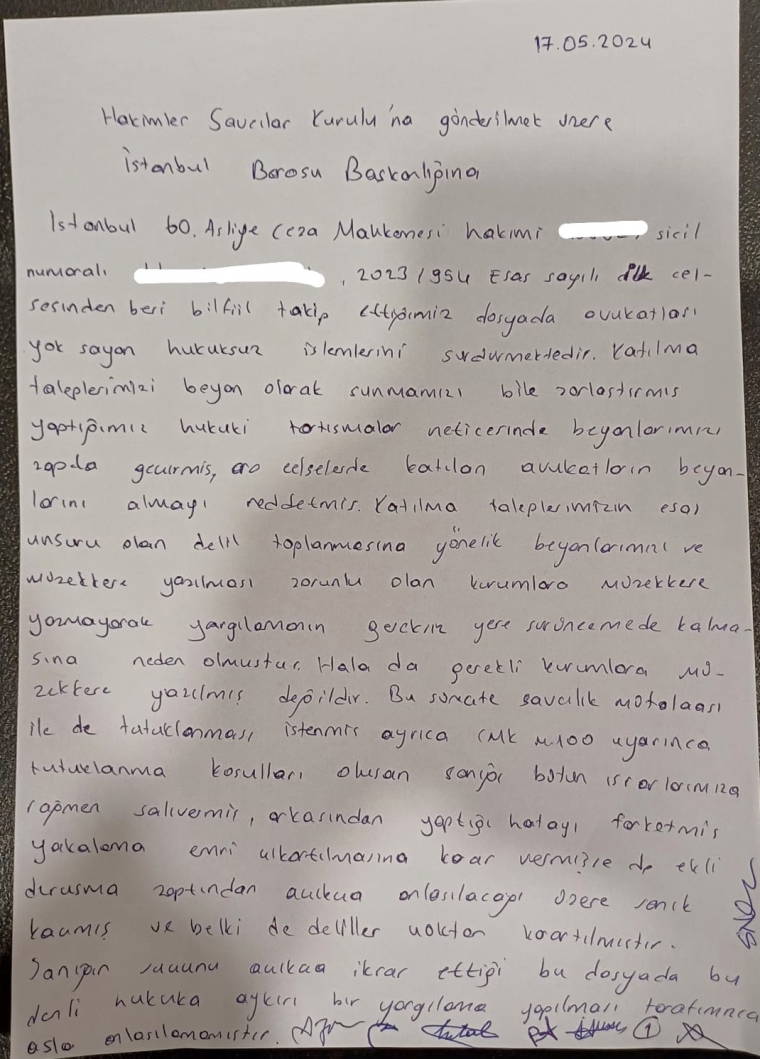 17.05.2024
Hakimler Savcılar Kurulu'na gönderilmek üzere
İstanbul Barosu Başkanlığına
Istanbul 60. Asliye Ceza Mahkemesi hakimi sicil
numaralı , 2023/954 Esas sayılı ilk cel-
sesinden beri bilfiil takip ettiğimiz dosyada avukatları
yok sayan hukuksuz işlemlerini sürdürmektedir. Katılma
taleplerimizi beyan olarak sunmamızı bile zorlaştırmış
yaptığımız hukuki tartışmalar neticesinde beyanlarımızı
zapda geçirmiş, ara celselerde katılan avukatların beyan-
larını almayı reddetmiş. Katılma taleplerimizin esas
unsuru olan delil toplanmasına yönelik beyanlarımızı ve
müzekkere yazılması zorunlu olan kurumlara müzekkere
yazmayarak yargılamanın gereksiz yere sürüncemede kalma-
sına neden olmuştur. Hala da gerekli kurumlara mü-
zekkere yazılmış değildir. Bu süreçte savcılık mütalaası
ile de tutuklanması istenmiş ayrıca CMK m.100 uyarınca
tutuklanma koşulları oluşan sanığı bütün ısrarlarımıza
rağmen salıvermiş, arkasından yaptığı hatayı farketmiş
yakalama emri çıkartılmasına karar vermişse de ekli
duruşma zaptından açıkça anlaşılacağı üzere sanık
kaçmış ve belki de deliller çoktan karartılmıştır.
Sanığın suçunu açıkça ikrar ettiği bu dosyada bu
denli hukuka aykırı bir yargılama yapılması tarafımızca
asla anlaşılamamıştır. 1